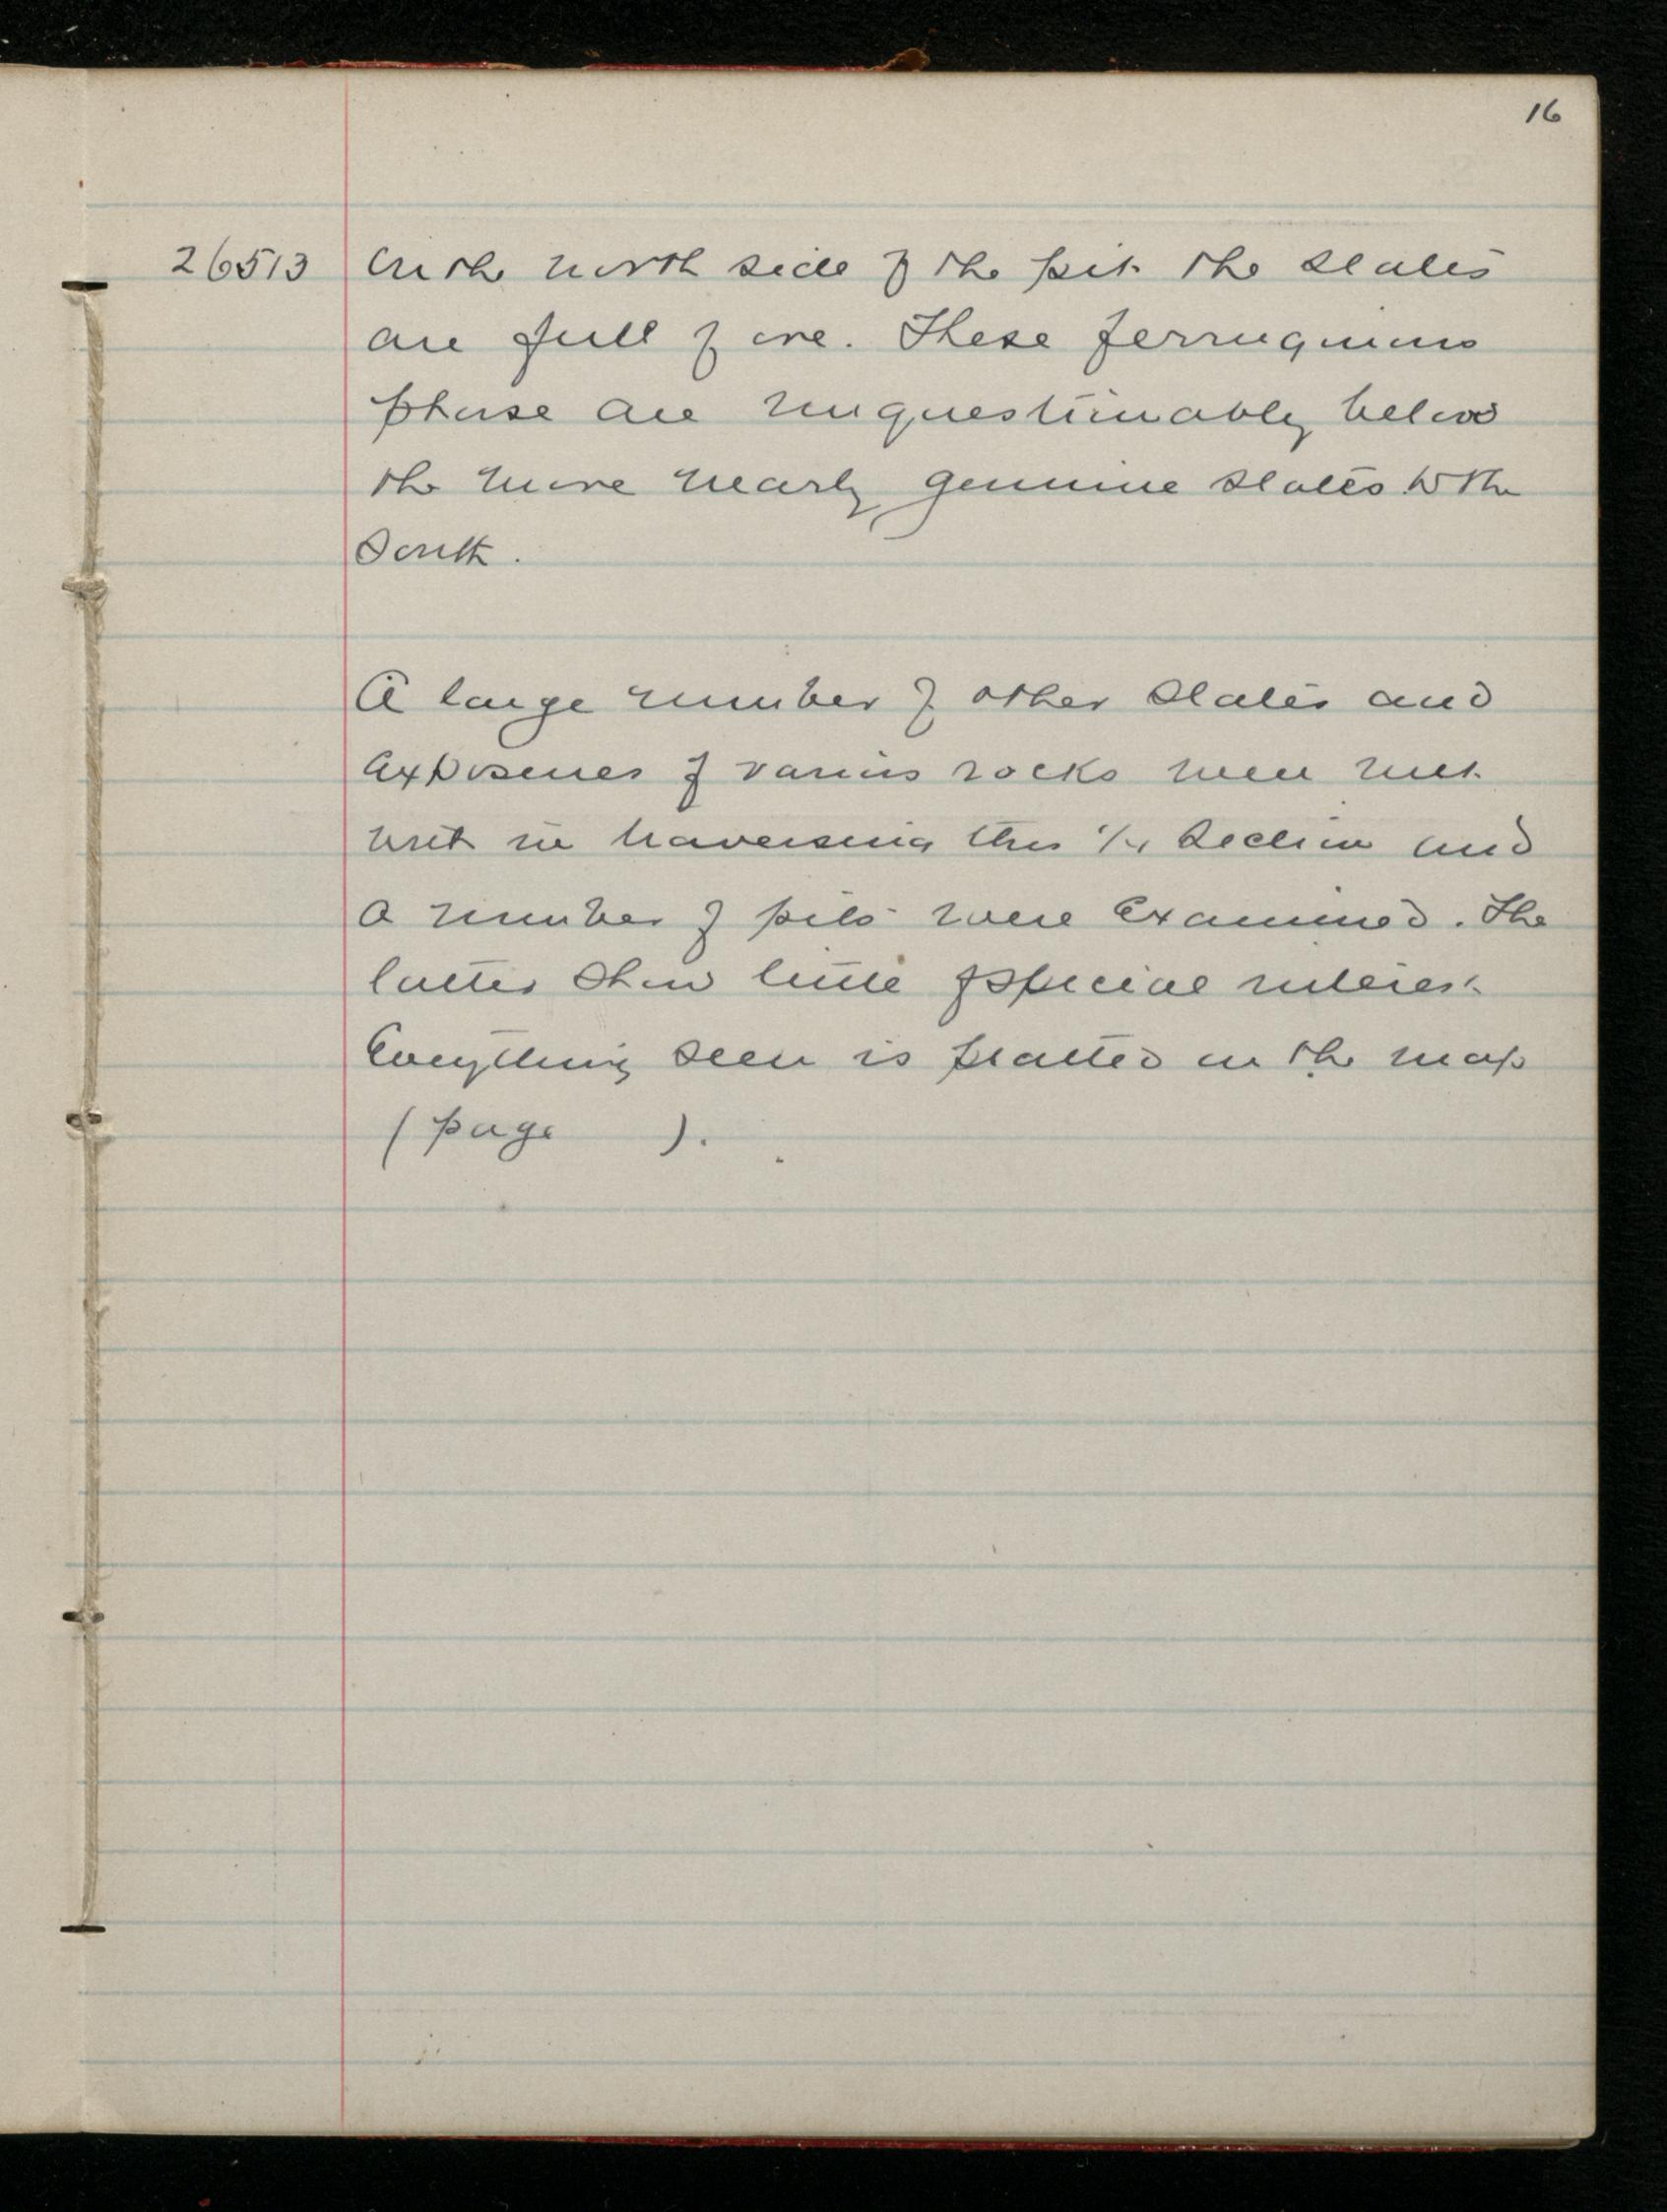 16
26513 On the north side of the pit the slates
are full of ore. These ferruginous
phase are unquestionably below
the more nearly genuine slates to the
South.
A large number of other slates and
exposures of various rocks were met
with in traversing this 1/4 Section and
a number of pits were examined. The
latter show little of special interest
Everything seen is platted on the map
(page ).